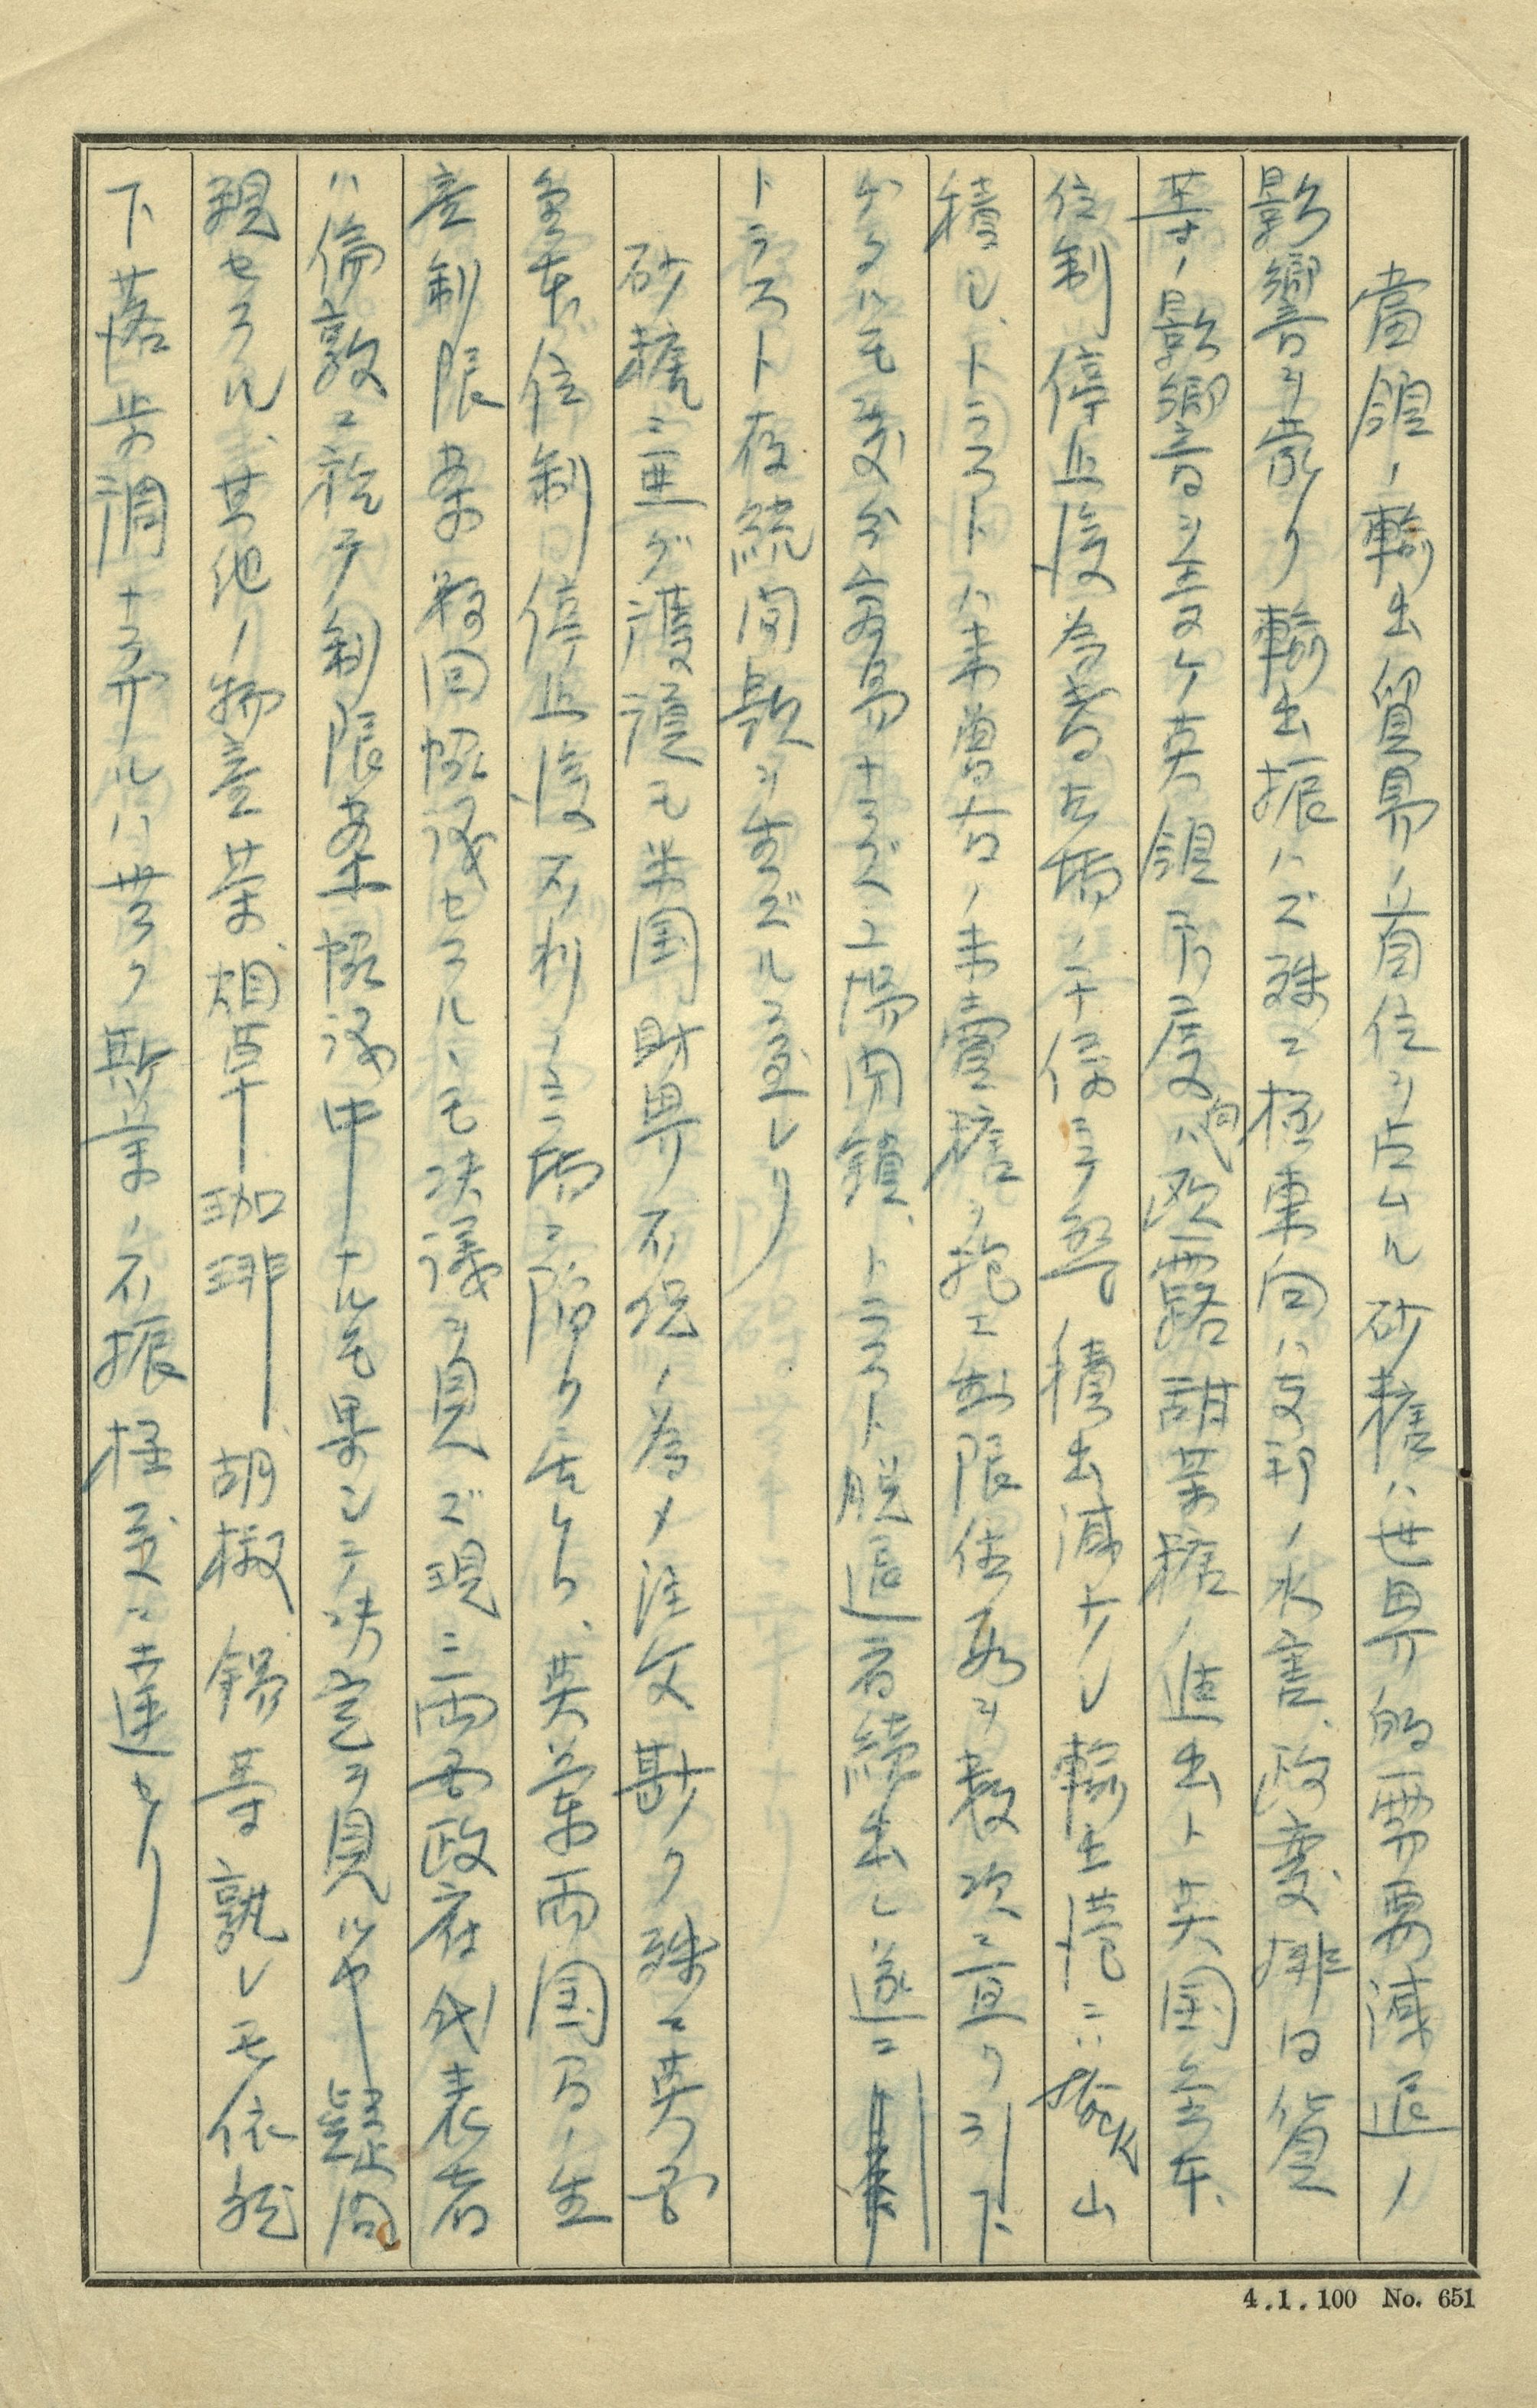 當領ノ輸出貿易ノ首位ヲ占ムル砂糖ハ世界的需要減退ノ
影響ヲ蒙リ輸出振ハズ殊ニ極東向ハ支那ノ水害、政変排日貨
等ノ影響ヲ受ケ英領印度向ハ欧露甜菜糖ノ進出ト英国金本、
位制停止後為替相場ノ 積出減少シ輸出港ニハ 山
積シ、トラストハ未曽有ノ未賣糖ヲ抱エ制限値段ヲ数次ニ亘リ引下
ゲタルモ充分容易ナラズ工場閉鎖、トラスト脱退者続出シ遂ニ
トラスト存続問題ヲ生ズルニ至レリ
砂糖ニ亜グ護謨モ米国財界不況ノ為メ注文尠ク殊ニ英国
金本位制停止後不利ノ立場ニ陥リ 、英蘭両国間ノ生
産制限案数回協議セラルヽモ決議ヲ見ズ現ニ両国政府代表者
ハ倫敦ニ於テ制限案協議中ナルモ果シテ決定ヲ見ルヤ疑問
視セラル、其他ノ物産茶、烟草、珈琲、胡椒 錫等孰レモ依然
下落歩調ナラザルハ無ク斯業ノ不振極度ニ達セリ
4.1.100 No. 651